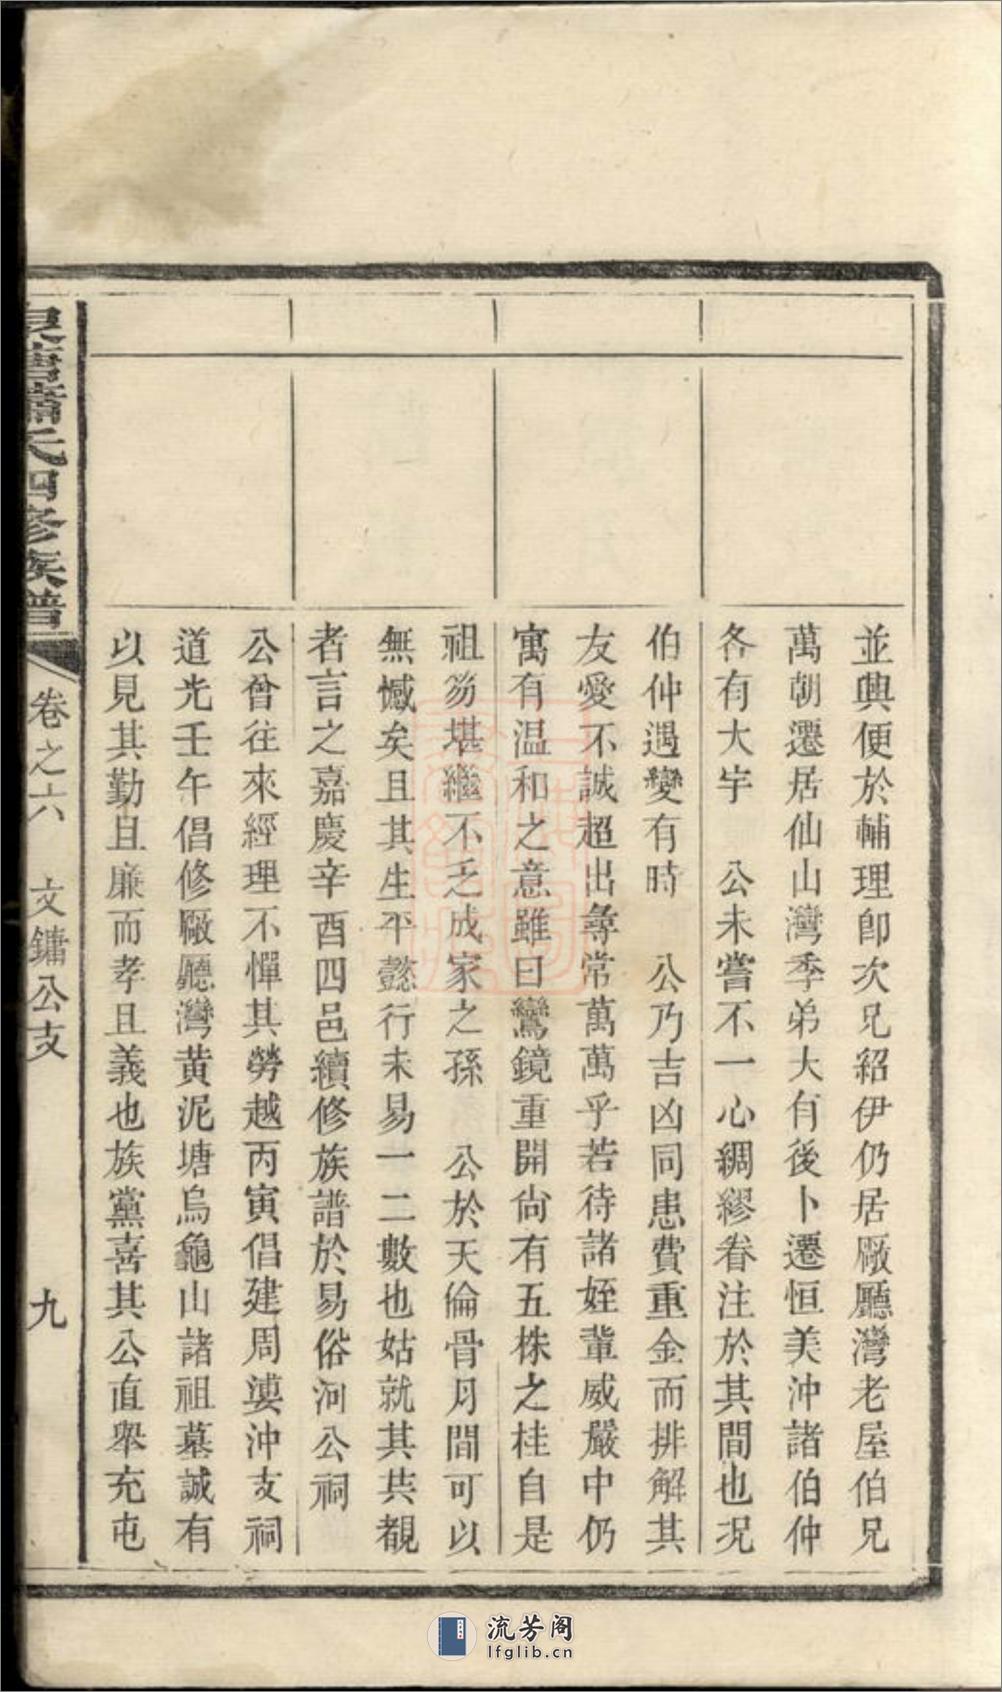 並興便於輔理卽次兄紹伊仍居廠廳灣老屋伯兄
萬朝遷居仙山灣季弟大有後卜遷恒美沖諸伯仲
各有大宇　公未嘗不一心綢繆眷注於其間也况
伯仲遇變有時　公乃吉凶同患費重金而排解其
友愛不誠超出尋常萬萬乎若待諸姪輩威嚴中仍
寓有温和之意雖曰鸞鏡重開尙有五株之桂自是
祖笏堪繼不乏成家之孫　公於天倫骨月間可以
無憾矣且其生平懿行未易一二數也姑就其共覩
者言之嘉慶辛酉四邑續修族譜於易俗河公祠
公曾往來經理不憚其勞越丙寅倡建周婆沖支祠
道光壬午倡修廠廳灣黄泥塘烏龜山諸祖墓誠有
以見其勤且廉而孝且義也族黨喜其公直舉充屯
蕭氏四修族譜
卷之六　文鏞公支
九
流芳阁
lfglib.cn